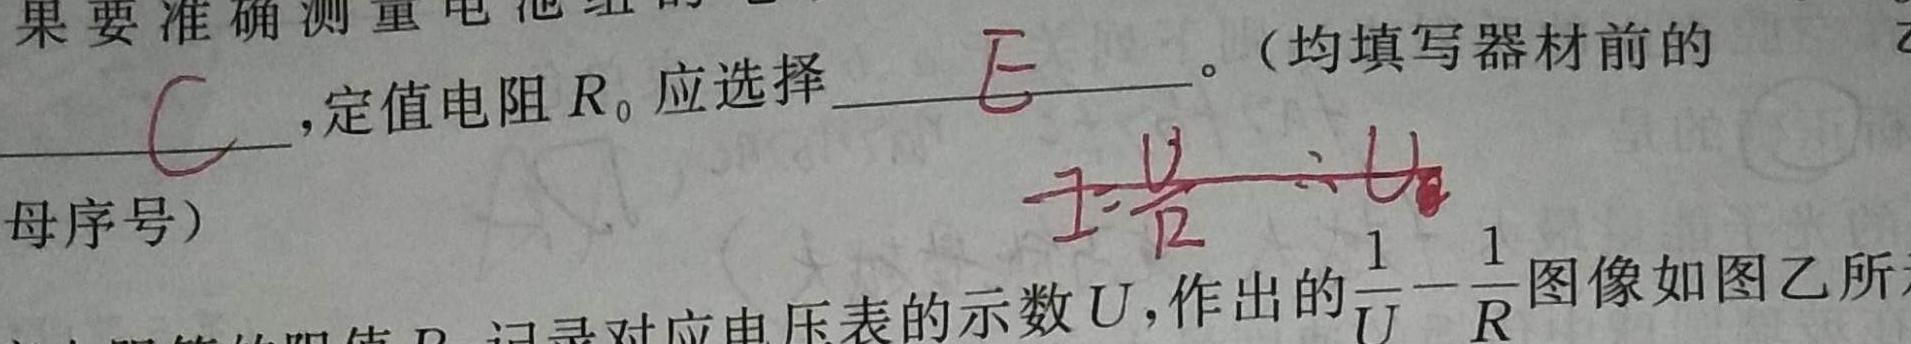 果要准确测量电池组的
C,定值电阻 R₀ 应选择 E。(均填写器材前的
I=U/R ∴U
母序号)
阻值 R 记录对应电压表的示数U,作出的1/U-1/R图像如图乙所